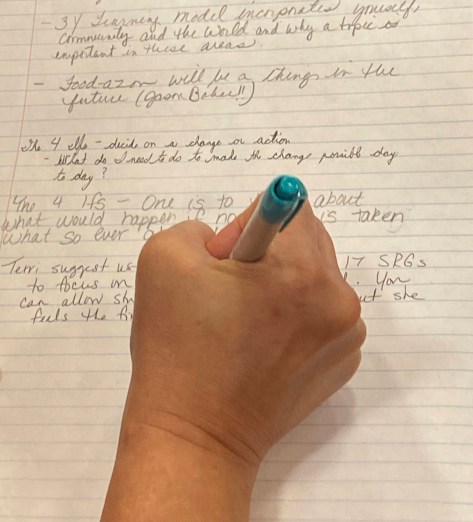 - 3Y Learning Model incorporates yourself,
community and the World and why a topic is
important in these areas.
- Food-azon will be a things in the
future (Jason Baker!!)
The 4 ifs - decide on a change or action
- What do I need to do to make the change possible day
to day?
The 4 Ifs - One is to about
what would happen if no is taken
What so ever
Terri suggest us 17 SRGs
to focus on You
can allow she
feels the